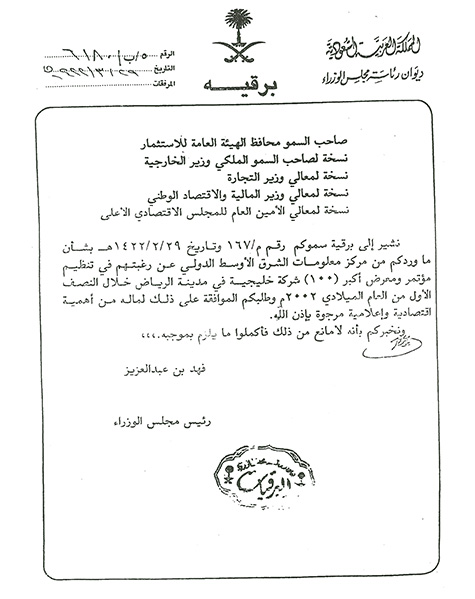 المملكة العربية السعودية
ديوان رئاسة مجلس الوزراء
برقيه
الرقم ٥/ب/٦١٨٠٠
التاريخ
المرفقات
صاحب السمو محافظ الهيئة العامة للاستثمار
نسخة لصاحب السمو الملكي وزير الخارجية
نسخة لمعالي وزير التجارة
نسخة لمعالي وزير المالية والاقتصاد الوطني
نسخة لمعالي الأمين العام للمجلس الاقتصادي الاعلى
نشير إلى برقية سموكم رقم م/١٦٧ وتاريخ ١٤٢٢/٢/٢٩هـ بشأن
ما وردكم من مركز معلومات الشرق الأوسط الدولي عن رغبتهم في تنظيم
مؤتمر ومعرض أكبر (١٠٠) شركة خليجية في مدينة الرياض خلال النصف
الأول من العام الميلادي ٢٠٠٢م وطلبكم الموافقة على ذلك لماله من أهمية
اقتصادية وإعلامية مرجوة بإذن الله.
ونخبركم بأنه لامانع من ذلك فأكملوا ما يلزم بموجبه،،،
فهد بن عبدالعزيز
رئيس مجلس الوزراء
البرقيات